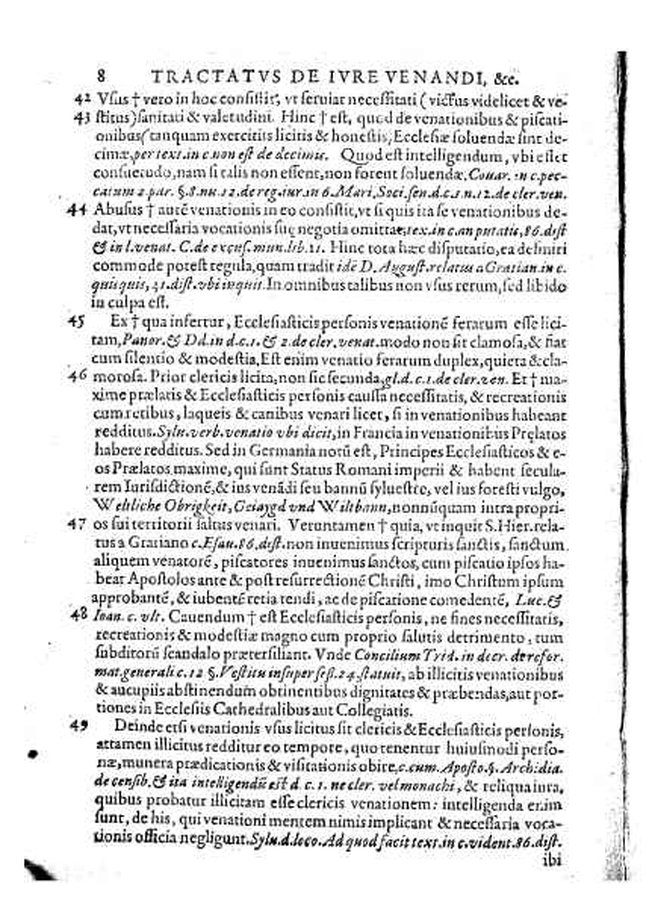 8 TRACTATVS DE IVRE VENANDI, &c.
42 Vsus † vero in hoc consistit, vt seruiat necessitati (victus videlicet & ve-
43 stitus) sanitati & valetudini. Hinc † est, quod de venationibus & piscati-
onibus (tanquam exercitiis licitis & honestis, Ecclesiæ soluendæ sint de-
cimæ, per text. in c. non est de decimis. Quod est intelligendum, vbi esset
consuetudo, nam si talis non essent, non forent soluendæ. Couar. in c. pec-
catum 2. par. §. 8. nu. 12. de reg. iur. in 6. Mari. Soci. sen. d. c. 1. n. 12. de cler. ven.
44 Abusus † autē venationis in eo consistit, vt si quis ita se venationibus de-
dat, vt necessaria vocationis suę negotia omittat, tex. in c. an putatis, 86. dist
& in l. venat. C. de excus. mun. lib. 11. Hinc tota hæc disputatio, ea definiri
commode potest regula, quam tradit idē D. August. relatus a Gratian. in c.
quisquis, 41. dist. vbi inquit. In omnibus talibus non vsus rerum, sed libido
in culpa est.
45 Ex † qua infertur, Ecclesiasticis personis venationē ferarum esse lici-
tam, Panor. & Dd. in d. c. 1. & 2. de cler. venat. modo non sit clamosa, & fiat
cum silentio & modestia, Est enim venatio ferarum duplex, quieta & cla-
46 morosa. Prior clericis licita, non sic secunda, gl. d. c. 1. de cler. ven. Et † ma-
xime prælatis & Ecclesiasticis personis caussa necessitatis, & recreationis
cum retibus, laqueis & canibus venari licet, si in venationibus habeant
redditus. Sylu. verb. venatio vbi dicit, in Francia in venationibus Pręlatos
habere redditus. Sed in Germania notū est, Principes Ecclesiasticos & e-
os Prælatos maxime, qui sunt Status Romani imperii & habent secula-
rem Iurisdictionē, & ius venādi seu bannū syluestre, vel ius foresti vulgo,
Weltliche Obrigkeit, Geiaygd vnd Wiltbann, nonnūquam intra propri-
47 os sui territorii saltus venari. Veruntamen † quia, vt inquit S. Hier. rela-
tus a Gratiano c. Esau. 86. dist. non inuenimus scripturis sanctis, sanctum
aliquem venatorē, piscatores inuenimus sanctos, cum piscatio ipsos ha-
beat Apostolos ante & post resurrectionē Christi, imo Christum ipsum
approbantē, & iubentē retia tendi, ac de piscatione comedentē, Luc. &
48 Ioan. c. vlt. Cauendum † est Ecclesiasticis personis, ne fines necessitatis,
recreationis & modestiæ magno cum proprio salutis detrimento, tum
subditorū scandalo prætersiliant. Vnde Concilium Trid. in decr. de refor.
mat. generali c. 12 §. Vestitu insuper sess. 24. statuit, ab illicitis venationibus
& aucupiis abstinendum obtinentibus dignitates & præbendas, aut por-
tiones in Ecclesiis Cathedralibus aut Collegiatis.
49 Deinde etsi venationis vsus licitus sit clericis & Ecclesiasticis personis,
attamen illicitus redditur eo tempore, quo tenentur huiusmodi perso-
næ, munera prædicationis & visitationis obire, c. cum Aposto. §. Archidia.
de censib. & ita intelligendū est d. c. 1. ne cler. vel monachi, & reliqua iura,
quibus probatur illicitam esse clericis venationem: intelligenda enim
sunt, de his, qui venationi mentem nimis implicant & necessaria voca-
tionis officia negligunt. Sylu. d. loco. Ad quod facit text. in c. vident. 86. dist.
ibi